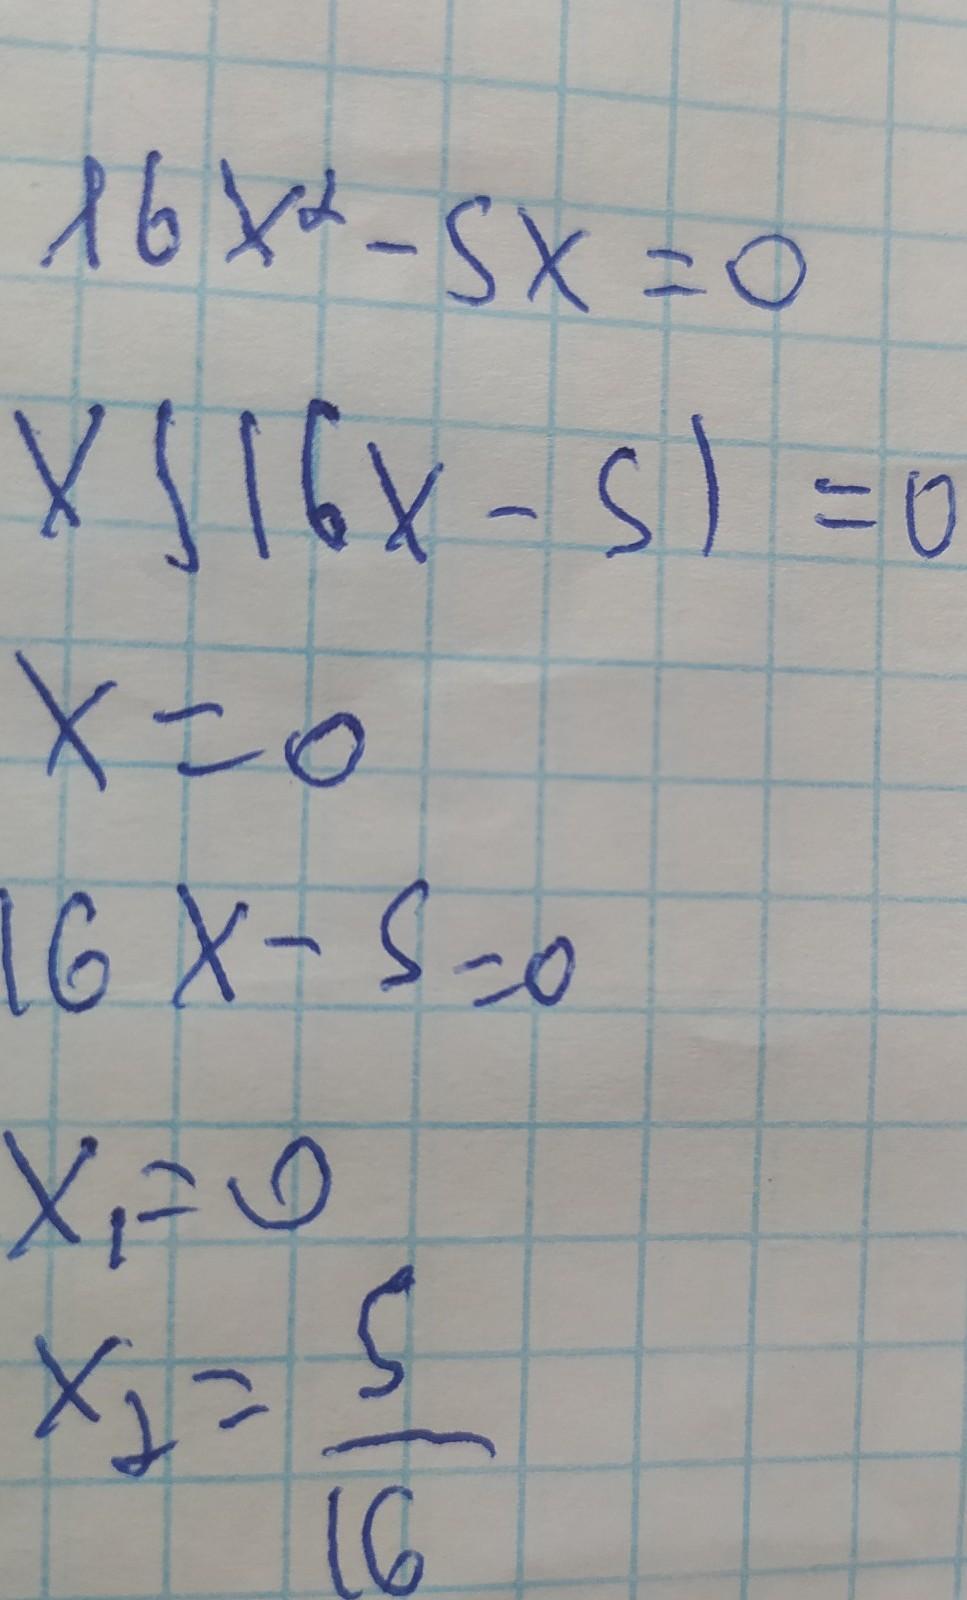 16x² - 5x = 0
x(16x - 5) = 0
x = 0
16x - 5 = 0
x₁ = 0
x₂ = 5/16